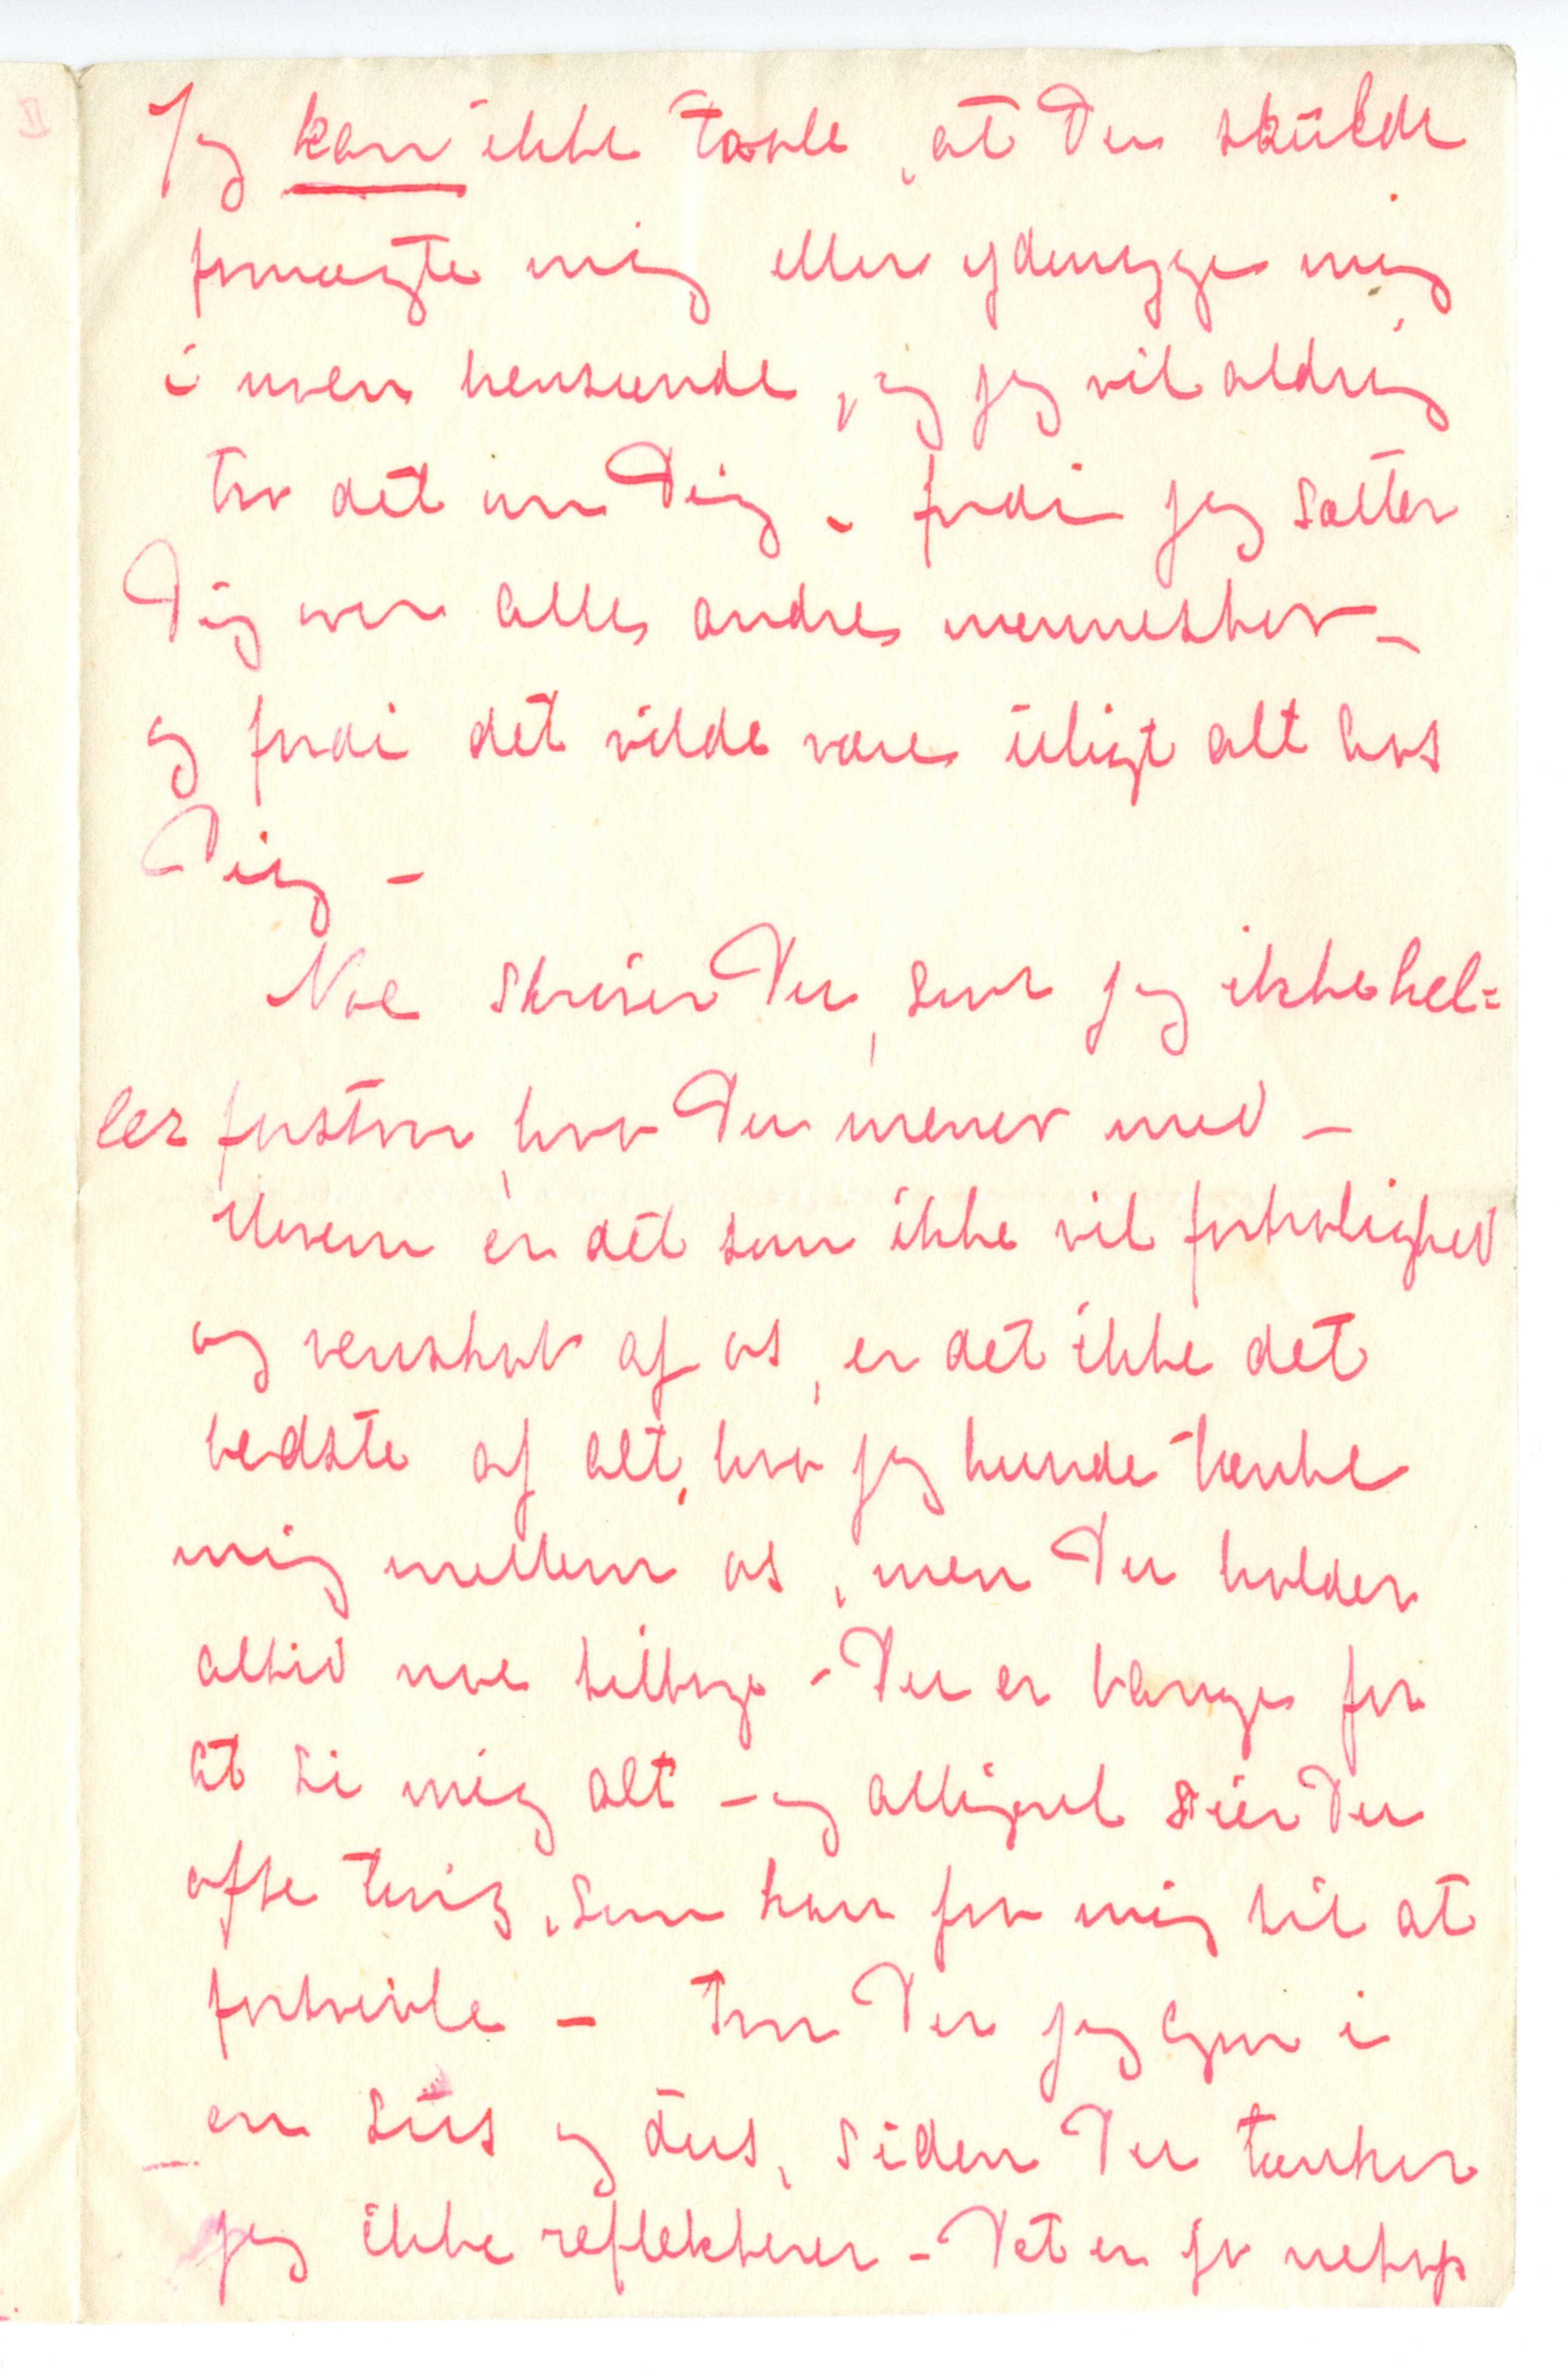 Jeg kan ikke taale, at Du skulde
fornægte mig eller ydmyge mig
i noen henseende, og jeg vil aldrig
tro det om Dig, fordi jeg sætter
Dig over alle andre mennesker –
og fordi det vilde være uligt alt hos
Dig –
Noe skriver Du, som jeg ikke hel=
ler forstaar, hva Du mener med –
Hvem er det som ikke vil fortrolighed
og venskab af os, er det ikke det
bedste af alt, hva jeg kunde tænke
mig mellem os, men Du holder
altid noe tilbage – Du er bange for
at si mig alt – og alligevel sier Du
ofte ting, som kan faa mig til at
fortvivle – Tror Du jeg lever i
en sus og dus, siden Du tænker
jeg ikke reflekterer – Det er jo netop